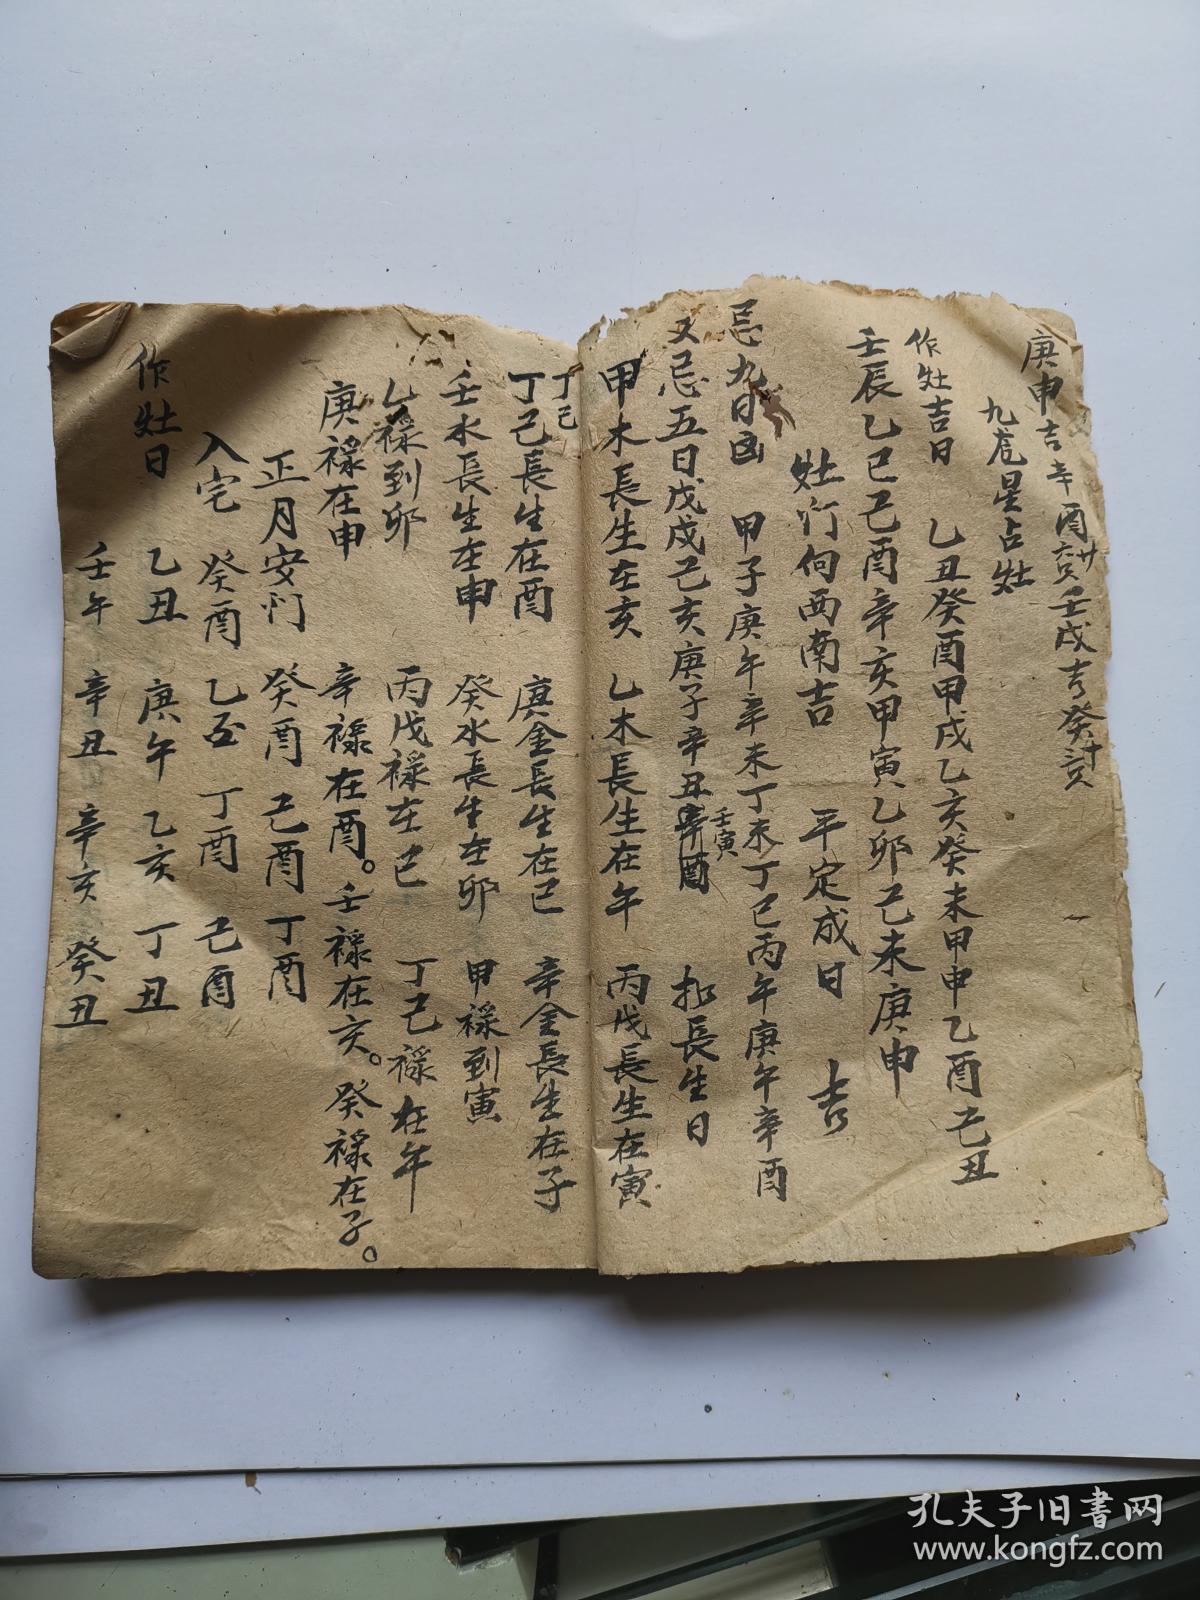 庚申吉辛酉 壬戌吉癸
九虎星占灶
作灶吉日 乙丑癸酉甲戌乙亥癸未甲申乙酉己丑
壬辰乙巳己酉辛亥甲寅乙卯己未庚申
灶门向西南吉 平定成日 吉
忌九日凶 甲子庚午辛未丁未丁巳丙午庚午辛酉
又忌五日戊戌己亥庚子辛丑辛酉 壬寅 長生日
甲木長生在亥 乙木長生在午 丙戊長生在寅
丁己
丁己長生在酉 庚金長生在巳 辛金長生在子
壬水長生在申 癸水長生在卯 甲禄到寅
乙禄到卯 丙戊禄在巳 丁己禄在午
庚禄在申 辛禄在酉。壬禄在亥。癸禄在子。
正月安门 癸酉 己酉 丁酉
入宅 癸酉 乙丑 丁酉 己酉
作灶日 乙丑 庚午 乙亥 丁丑
壬午 辛丑 辛亥 癸丑
孔夫子旧書网
www.kongfz.com